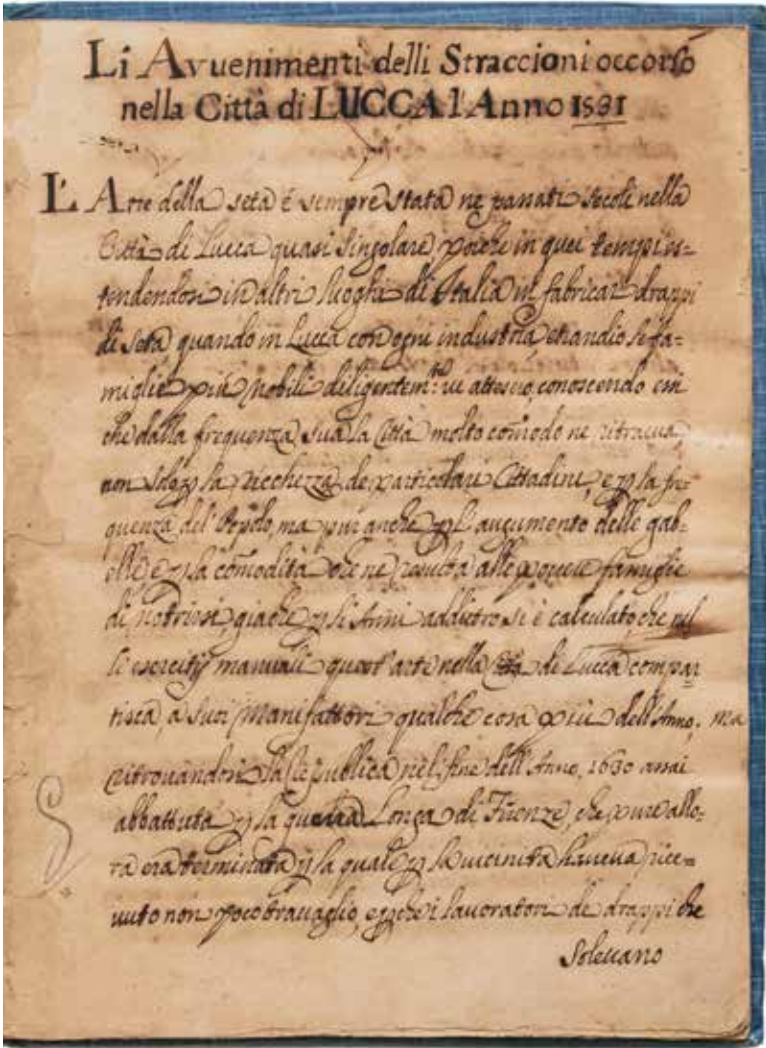 Li Avvenimenti delli Straccioni occorso
nella Città di LUCCA l'Anno 1531
L'Arte della seta é sempre stata ne passati secoli nella
Città di Lucca quasi singolare, poiche in quei tempi in=
tendendosi in altri luoghi di Italia in fabricar drappi
di seta quando in Lucca con ogni industria, etiandio le fa=
miglie più nobili diligentem.te ve attesero, conoscendo essi
che dalla frequenza sua la Città molto comodo ne ritraeva,
non solo p la ricchezza de particolari Cittadini, e p la fre
quenza del Popolo, ma pur anche p l'augumento delle gab=
elle e p la comodità che ne resulta alle povere famiglie
di notrirsi, giache p li Anni addietro si è calculato, che nel
li esercitij manuali quest'arte nella Città di Lucca compar
tisca, a suoi Manifattori qualche cosa più dell'Anno. ma
ritrovandosi la Republica nel fine dell'Anno, 1630 assai
abbattuta p la guerra Longa di Firenze, che pure allo=
ra era terminata p la quale p la vicinità haveva rice=
vuto non poco travaglio, e p che i lavoratori de drappi che
Solevano